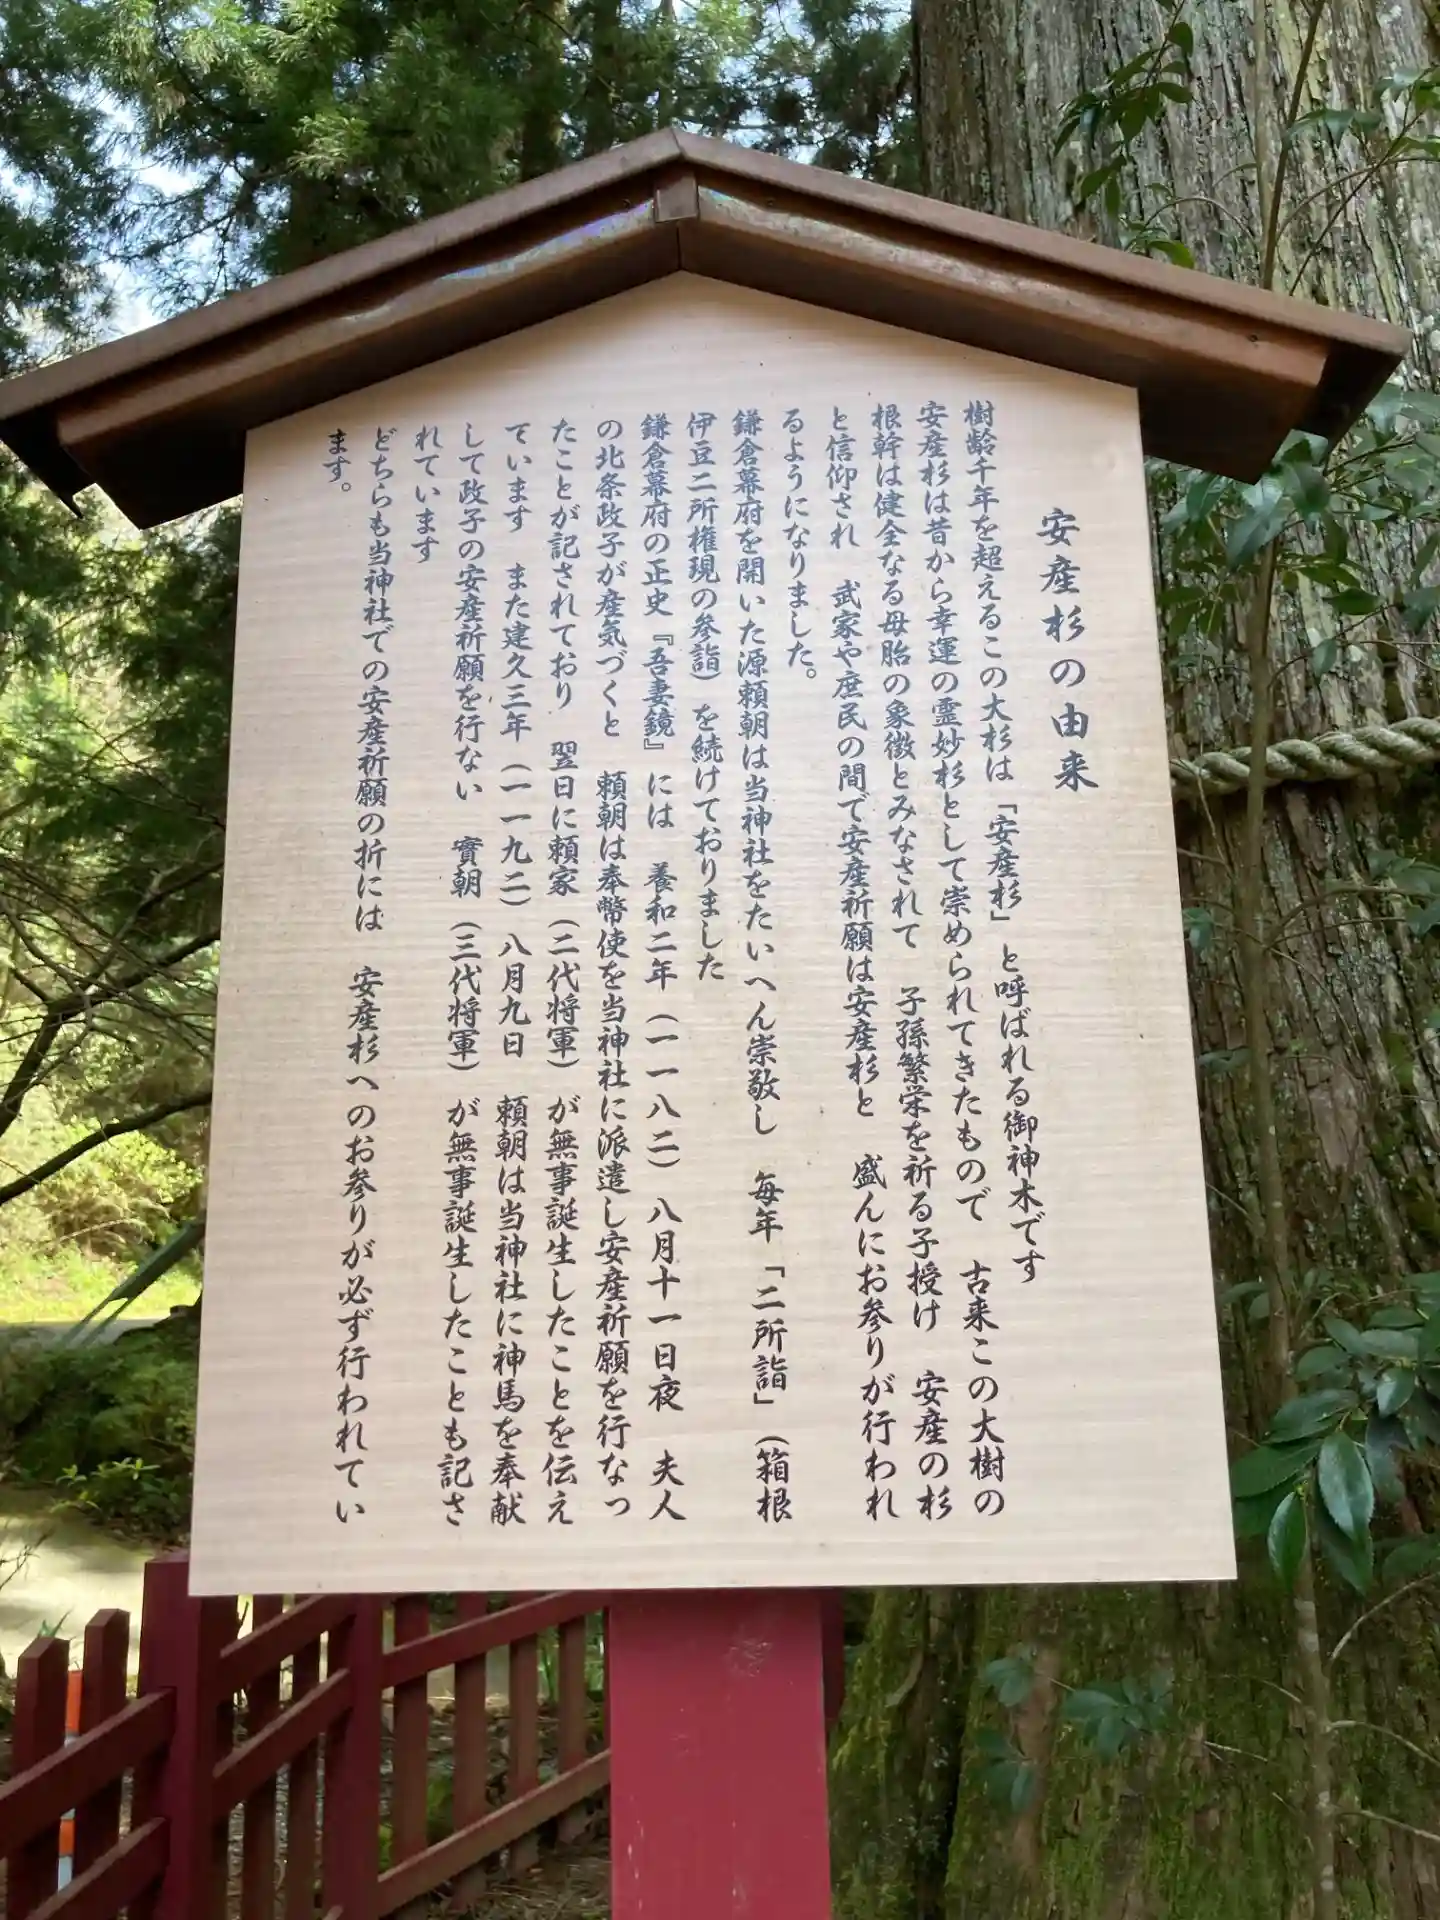 安産杉の由来
樹齢千年を超えるこの大杉は「安産杉」と呼ばれる御神木です
安産杉は昔から幸運の霊妙杉として崇められてきたもので　古来この大樹の
根幹は健全なる母胎の象徴とみなされて　子孫繁栄を祈る子授け　安産の杉
と信仰され　武家や庶民の間で安産祈願は安産杉と　盛んにお参りが行われ
るようになりました。
鎌倉幕府を開いた源頼朝は当神社をたいへん崇敬し　毎年「二所詣」（箱根
伊豆二所権現の参詣）を続けておりました
鎌倉幕府の正史『吾妻鏡』には　養和二年（一一八二）八月十一日夜　夫人
の北条政子が産気づくと　頼朝は奉幣使を当神社に派遣し安産祈願を行なっ
たことが記されており　翌日に頼家（二代将軍）が無事誕生したことを伝え
ています　また建久三年（一一九二）八月九日　頼朝は当神社に神馬を奉献
して政子の安産祈願を行ない　實朝（三代将軍）が無事誕生したことも記さ
れています
どちらも当神社での安産祈願の折には　安産杉へのお参りが必ず行われてい
ます。